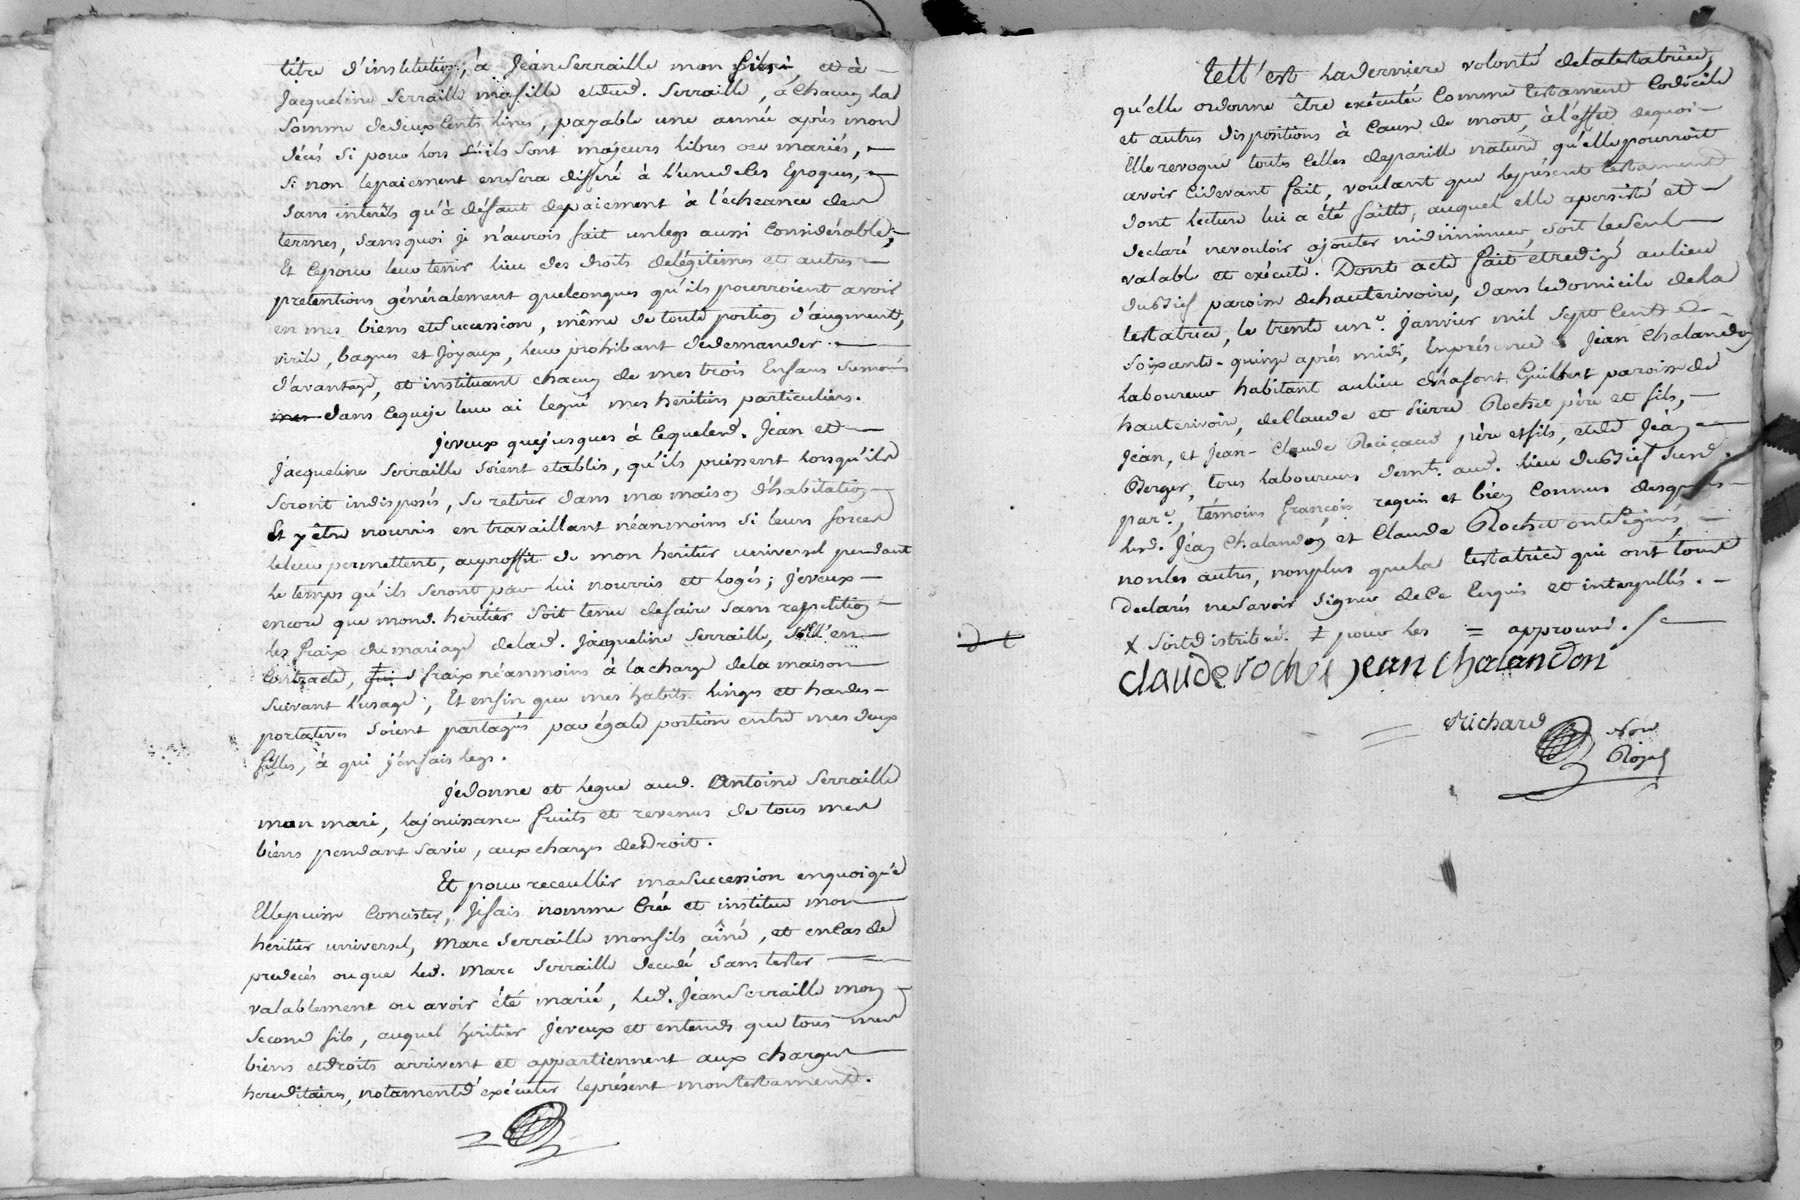 titre d'institution, à Jean Serraille mon fils et à
Jacqueline Serraille ma fille et dud. Serraille, à chacun la
somme de deux cents livres, payable une année après mon
décès si pour lors s'ils sont majeurs libres ou mariés,
si non le paiement en sera différé à l'une de ces Epoques,
sans interêts qu'à défaut de paiement à l'écheance des
termes, sans quoi je n'aurois fait un legs aussi Considérable;
Et ce pour leur tenir lieu des droits de légitimes et autres
pretentions généralement quelconques qu'ils pourroient avoir
en mes biens et succession, même de toute portion d'augment,
virile, bagues et joyaux, leur prohibant de demander
d'avantage, et instituant chacun de mes trois Enfans
dans ce que je leur ai legué mes heritiers particuliers.
je veux que jusques à ce que lesd. Jean et
Jacqueline Serraille soient etablis, qu'ils puissent lorsqu'ils
seront indisposés, se retirer dans ma maison d'habitation
Et y être nourris en travaillant néanmoins si leurs forces
le leur permettent, au proffit de mon heritier universel pendant
le temps qu'ils seront par lui nourris et logés; je veux
encore que mond. héritier soit tenu de faire sans repetition
les fraix du mariage de lad. Jacqueline Serraille, s'Ell'en
Contracte, ‡ fraix néanmoins à la charge de la maison
suivant l'usage; Et enfin que mes habits linges et hardes
portatives soient partagés par égale portion entre mes deux
filles, à qui j'en fais legs.
je donne et legue aud. Antoine Serraille
mon mari, la jouissance fruits et revenus de tous mes
biens pendant sa vie, aux charges de droit.
Et pour receullir ma succession en quoi qu'e
Elle puisse Consister, je fais nomme Crée et institue mon
héritier universel, Marc Serraille mon fils aîné, et en cas de
predecés ou que led. Marc Serraille decede sans tester
valablement ou avoir été marié, led. Jean Serraille mon
second fils, auquel heritier je veux et entends que tous mes
biens et droits arrivent et appartiennent aux charges
hereditaires, notamment d'exécuter le présent mon testament.
Tell'est la derniere volonté de la testatrice,
qu'elle ordonne être exécutée Comme testament Codicile
et autres dispositions à cause de mort, à l'effet de quoi
Elle revoque toutes Celles de pareille nature qu'elle pourroit
avoir Cidevant fait, voulant que le présent testament
dont lecture lui a été faitte, auquel elle a persisté et
declaré ne vouloir ajouter ni diminuer, soit le seul
valable et exécuté. Dont acte fait et redigé au lieu
paroisse de hauterivoire, dans le domicile de la
testatrice, le trente un.e Janvier mil sept Cent
soixante-quinze après midi, En présence de Jean Chalandon
laboureur habitant au lieu de paroisse de
hauterivoire, de Claude et Pierre Rochet père et fils,
Jean, et Jean-Claude père et fils, et de Jean
Berger, tous laboureurs demt. aud. lieu susd.
par.e, témoins françois requis et bien Connus desquels
lesd. Jean Chalandon et Claude Rochet ont signé,
non les autres, non plus que la testatrice qui ont tous
declarés ne savoir signer de Ce Enquis et interpellés.
X soit distribué. ‡ pour les = approuvé.
claude rochet jean chalandon
Richard